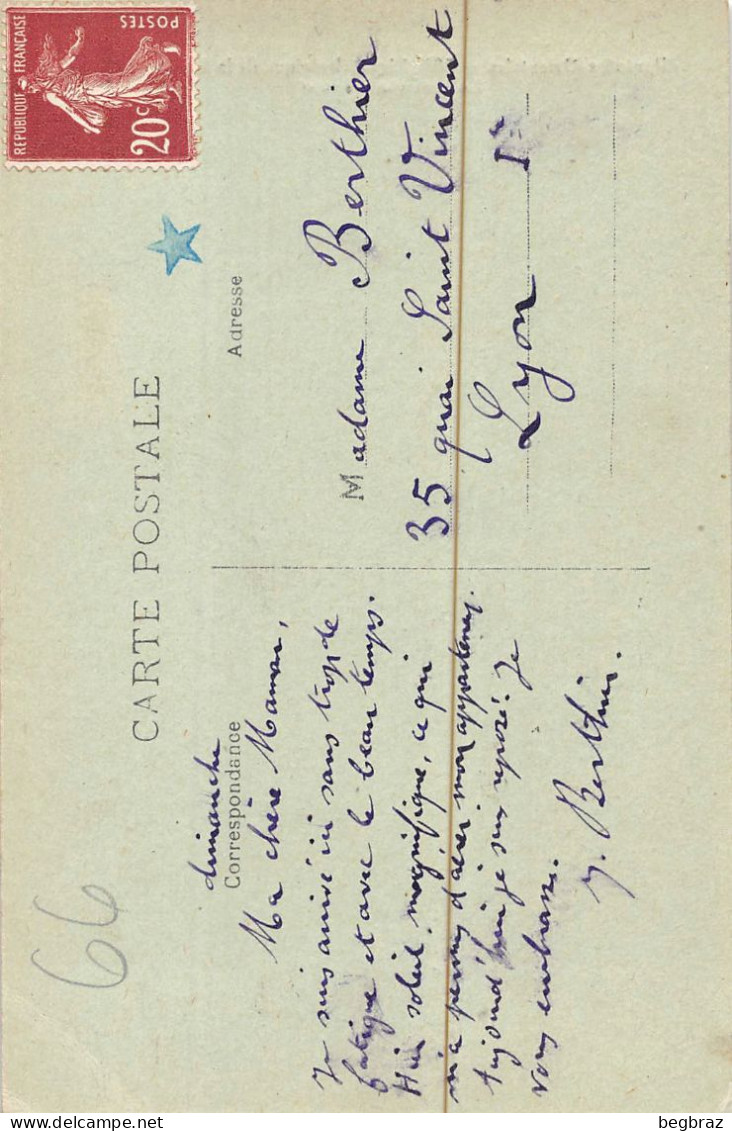 REPUBLIQUE FRANÇAISE
POSTES
20c
66
CARTE POSTALE
dimanche
Correspondance
Ma chère Maman,
Je suis arrivé ici sans trop de
fatigue et avec le beau temps.
Hier soleil magnifique, ce qui
m'a permis d'aérer mon appartement.
Aujourd'hui je suis reposé. Je
vous embrasse.
J. Berthier.
Adresse
Madame Berthier
35 quai Saint Vincent
Lyon 1er
begbraz